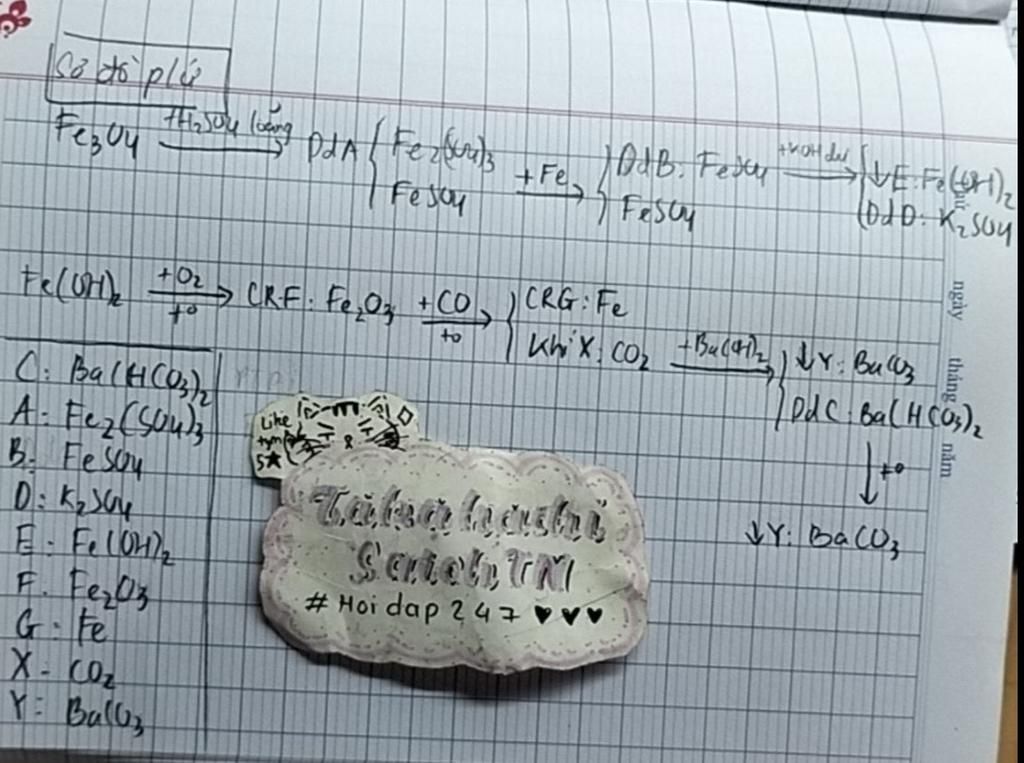 Sơ đồ pứ
Fe3O4 +H2SO4 loãng → DdA { Fe2(SO4)3 +Fe → } DdB: FeSO4 +KOH dư → { ↓E: Fe(OH)2
FeSO4 FeSO4 DdD: K2SO4
Fe(OH)2 +O2 t° → CRF: Fe2O3 +CO t° → { CRG: Fe
Khí X: CO2 +Ba(OH)2 → { ↓Y: BaCO3
DdC: Ba(HCO3)2
↓ t°
↓Y: BaCO3
C: Ba(HCO3)2
A: Fe2(SO4)3
B: FeSO4
D: K2SO4
E: Fe(OH)2
F: Fe2O3
G: Fe
X: CO2
Y: BaCO3
Like
5★
#Hoidap247 ♥♥♥
ngày tháng năm